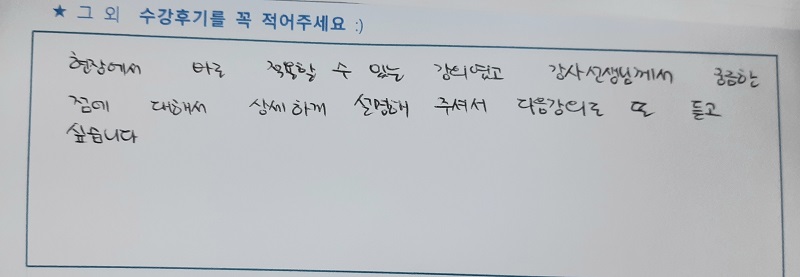 ★ 그 외 수강후기를 꼭 적어주세요 :)
현장에서 바로 적용할 수 있는 강의였고 강사선생님께서 궁금한
점에 대해서 상세하게 설명해 주셔서 다음강의도 또 듣고
싶습니다